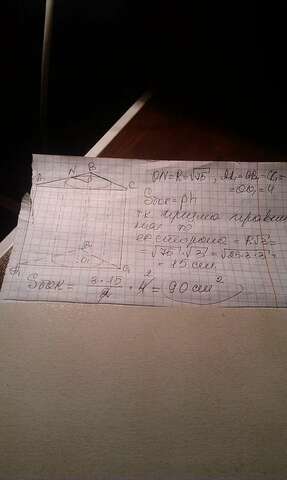 N B
A C
ON=R=√75, AA₁=BB₁=CC₁=
=OO₁=4
Sбок=Ph
тк призма правиль
ная то
её сторона = R√3=
=√75·√3=√25·3·3=
=15см.
Sбок= 3·15/2 · 4 = 90 см²